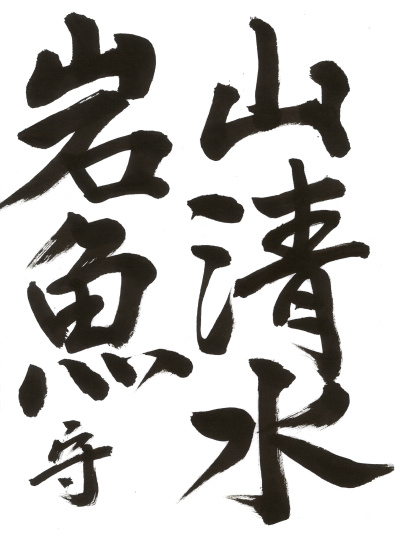 山清水
岩魚
守